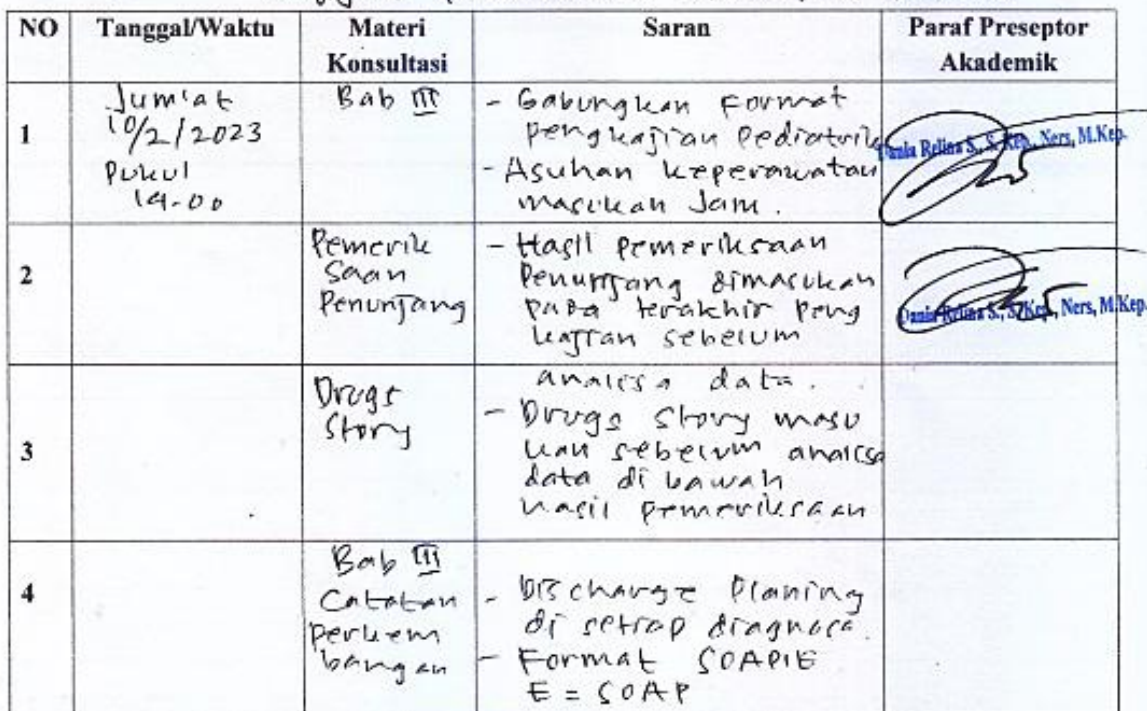 NO Tanggal/Waktu Materi Konsultasi Saran Paraf Preseptor Akademik
1
Jum'at
10/2/2023
Pukul
14.00
Bab III
- Gabungkan Format
pengkajian Pediatrik
- Asuhan keperawatan
masukan Jam.
Dania Relina S., S.Kep., Ners, M.Kep.
2
Pemerik
saan
Penunjang
- Hasil pemeriksaan
Penunjang dimasukan
pada terakhir peng
kajian sebelum
analisa data.
Dania Relina S., S.Kep., Ners, M.Kep.
3
Drugs
Story
- Drugs Story masu
kan sebelum analisa
data di bawah
hasil pemeriksaan
4
Bab III
Catatan
perkem
bangan
- Discharge Planing
di setiap diagnosa.
- Format SOAPIE
E = SOAP